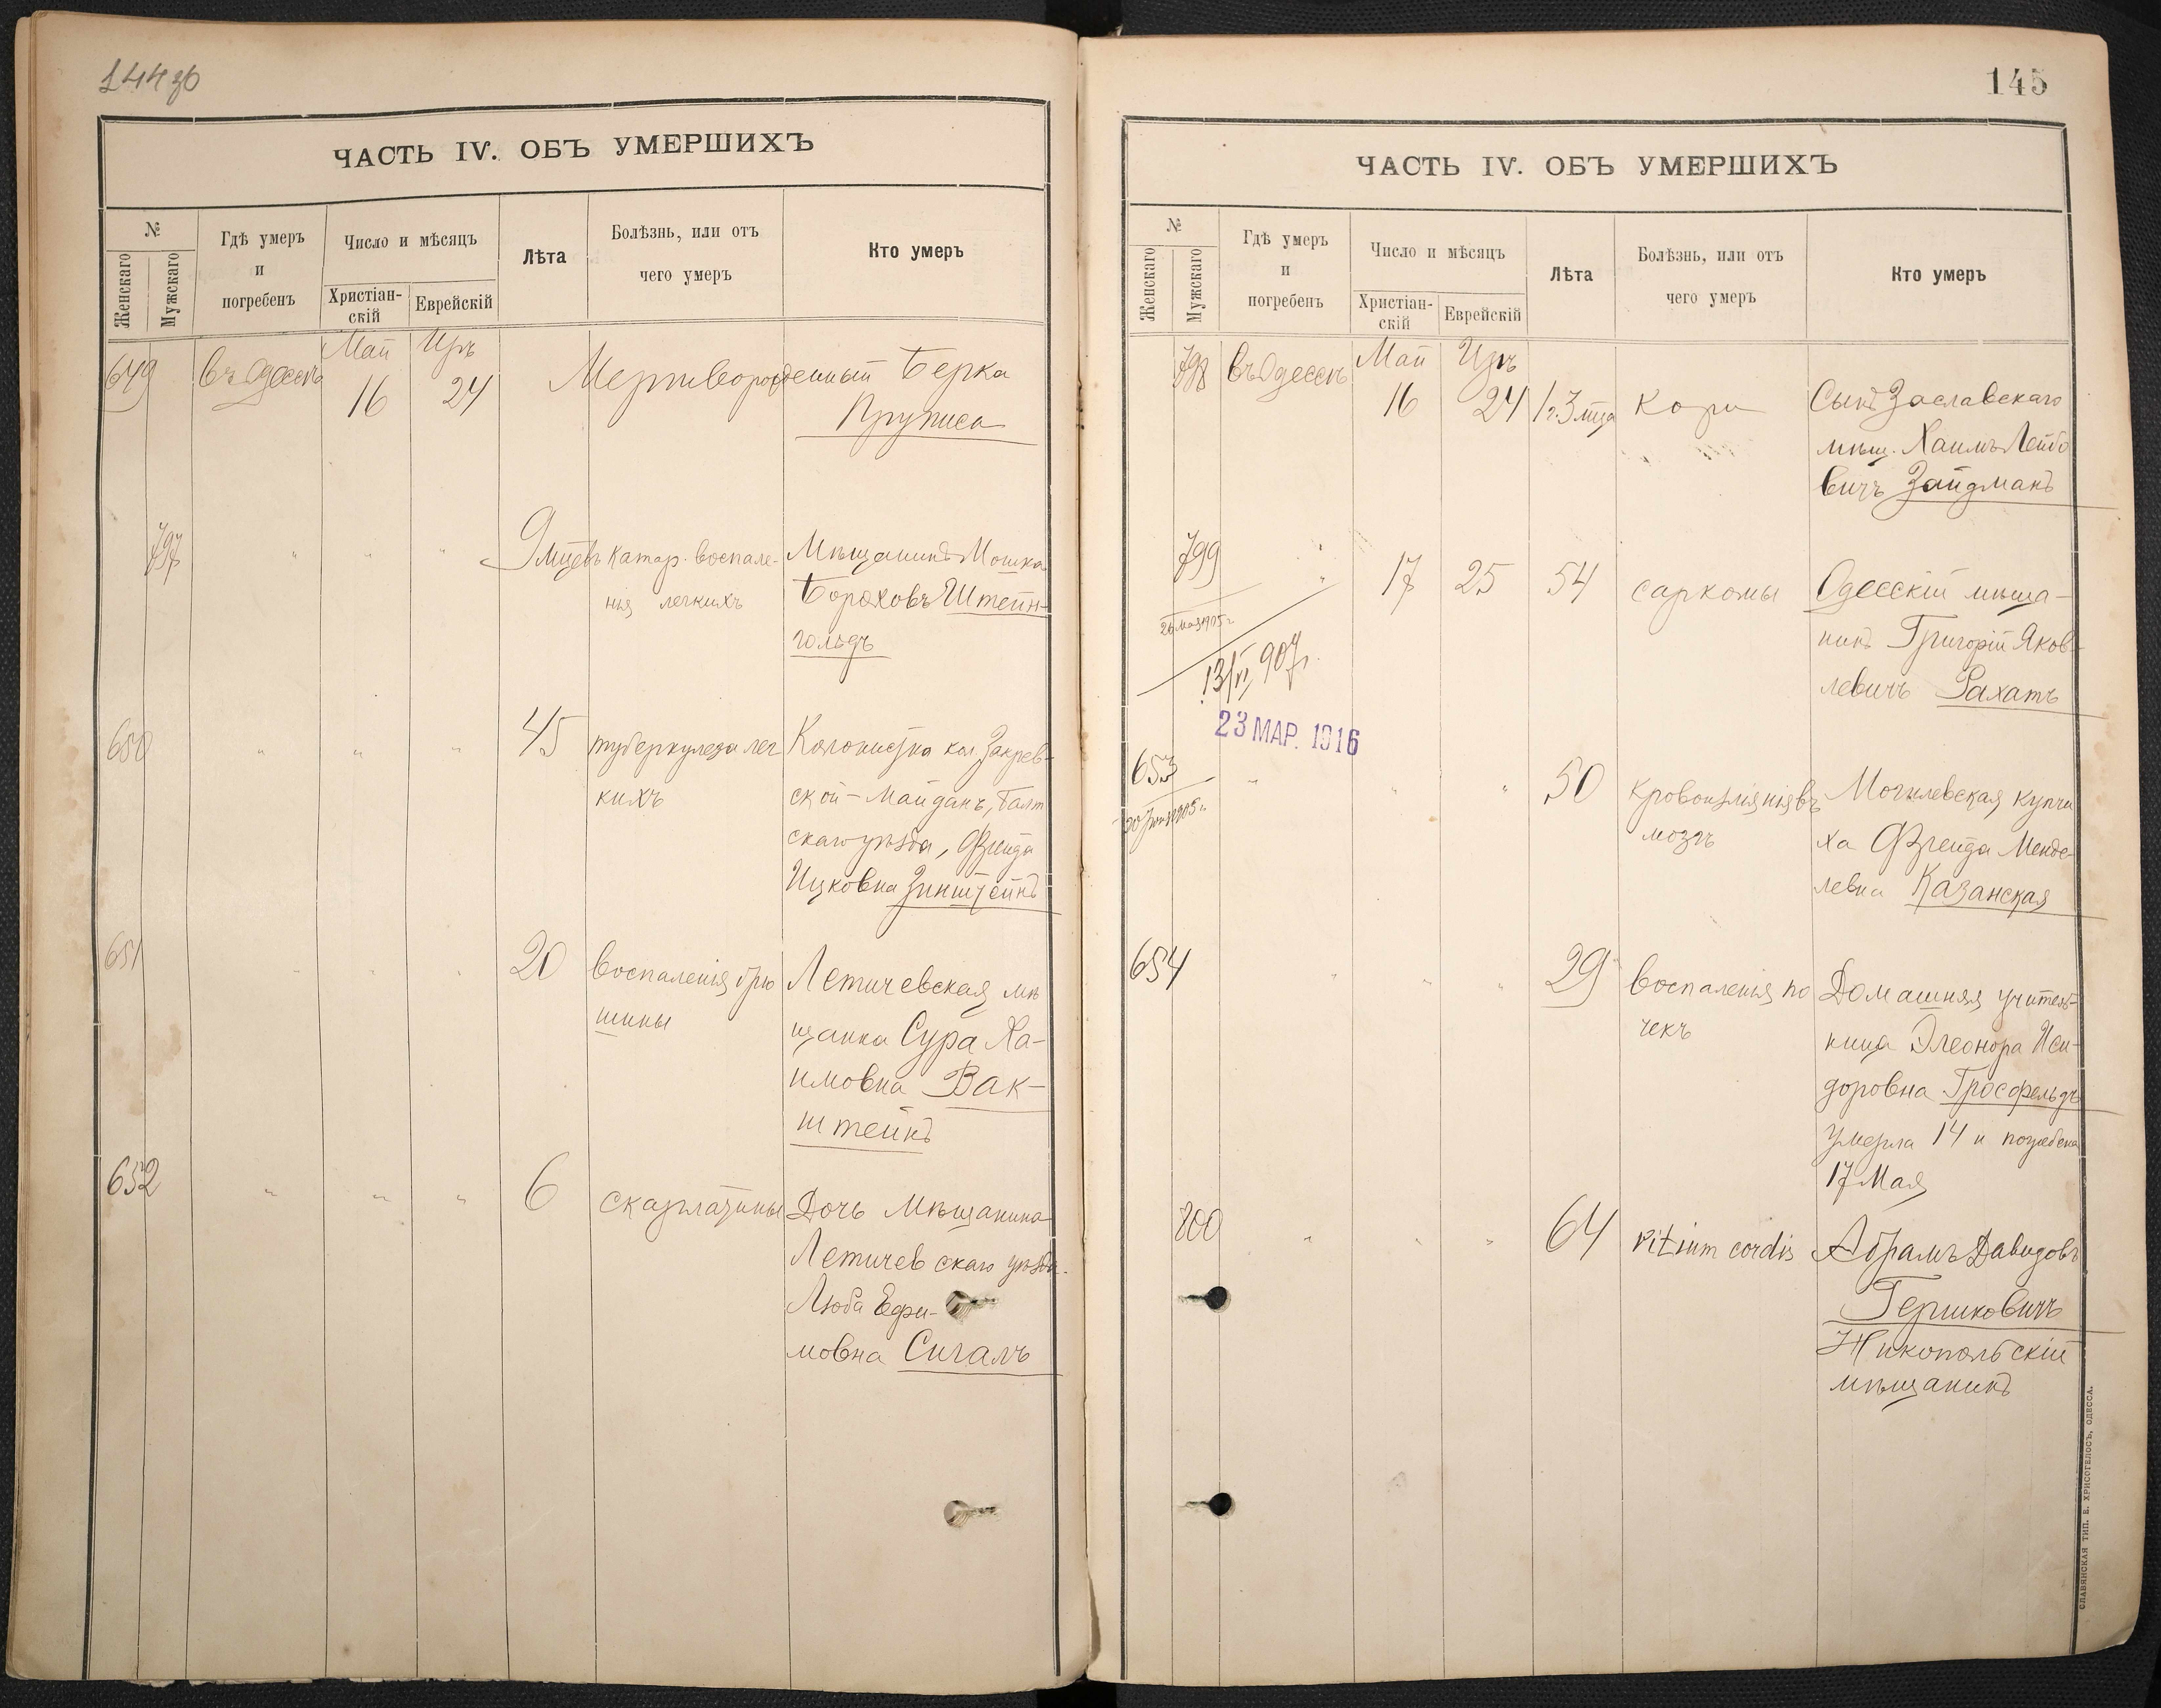 144 об
ЧАСТЬ IV. ОБЪ УМЕРШИХЪ
№
Женскаго
Мужскаго
Гдѣ умеръ
и
погребенъ
Число и мѣсяцъ
Христіан-
скій
Еврейскій
Лѣта
Болѣзнь, или отъ
чего умеръ
Кто умеръ
649 въ Одессѣ Май 16 Иръ 24 Мертворожденный Берка
797 " " " 9 мцевъ Катар. воспале- Мѣщанинъ Мошка
нія легкихъ Бороховъ Штейн-
гольдъ
650 " " " 45 туберкулеза лег Колонистка кол. Закрев-
кихъ ской-Майданъ, Балт
скаго уѣзда, Фрейда
Ицковна Зинштейнъ
651 " " " 20 воспаленія брю Летичевская мѣ
шины щанка Сура Ха-
имовна Вак-
штейнъ
652 " " " 6 скарлатины Дочь Мѣщанина
Летичевскаго уѣзда
Люба Ефи-
мовна Сигалъ
145
ЧАСТЬ IV. ОБЪ УМЕРШИХЪ
№
Женскаго
Мужскаго
Гдѣ умеръ
и
погребенъ
Число и мѣсяцъ
Христіан-
скій
Еврейскій
Лѣта
Болѣзнь, или отъ
чего умеръ
Кто умеръ
798 въ Одессѣ Май 16 Иръ 24 1 г. 3 мца Кори Сынъ Заславскаго
мѣщ. Хаимъ Лейбо
вичъ Зайдманъ
799 " 17 25 54 саркомы Одесскій мѣща-
26 мая 1905 г. нинъ Григорій Яков-
13/VI 907 г. левичъ Рахатъ
23 МАР. 1916
653 " " " 50 Кровоизліянія въ Могилевская купчи
1905 г. мозгъ ха Фрейда Менде-
левна Казанская
654 " " " 29 воспаленія по Домашняя учитель-
чекъ ница Элеонора Иси-
доровна Гросфельдъ
умерла 14 и погребена
17 Мая
800 " " " 64 vitium cordis Абрамъ Давидовъ
Гершковичъ
Никопольскій
мѣщанинъ
СЛАВЯНСКАЯ ТИП. Е. ХРИСОГЕЛОСЪ, ОДЕССА.